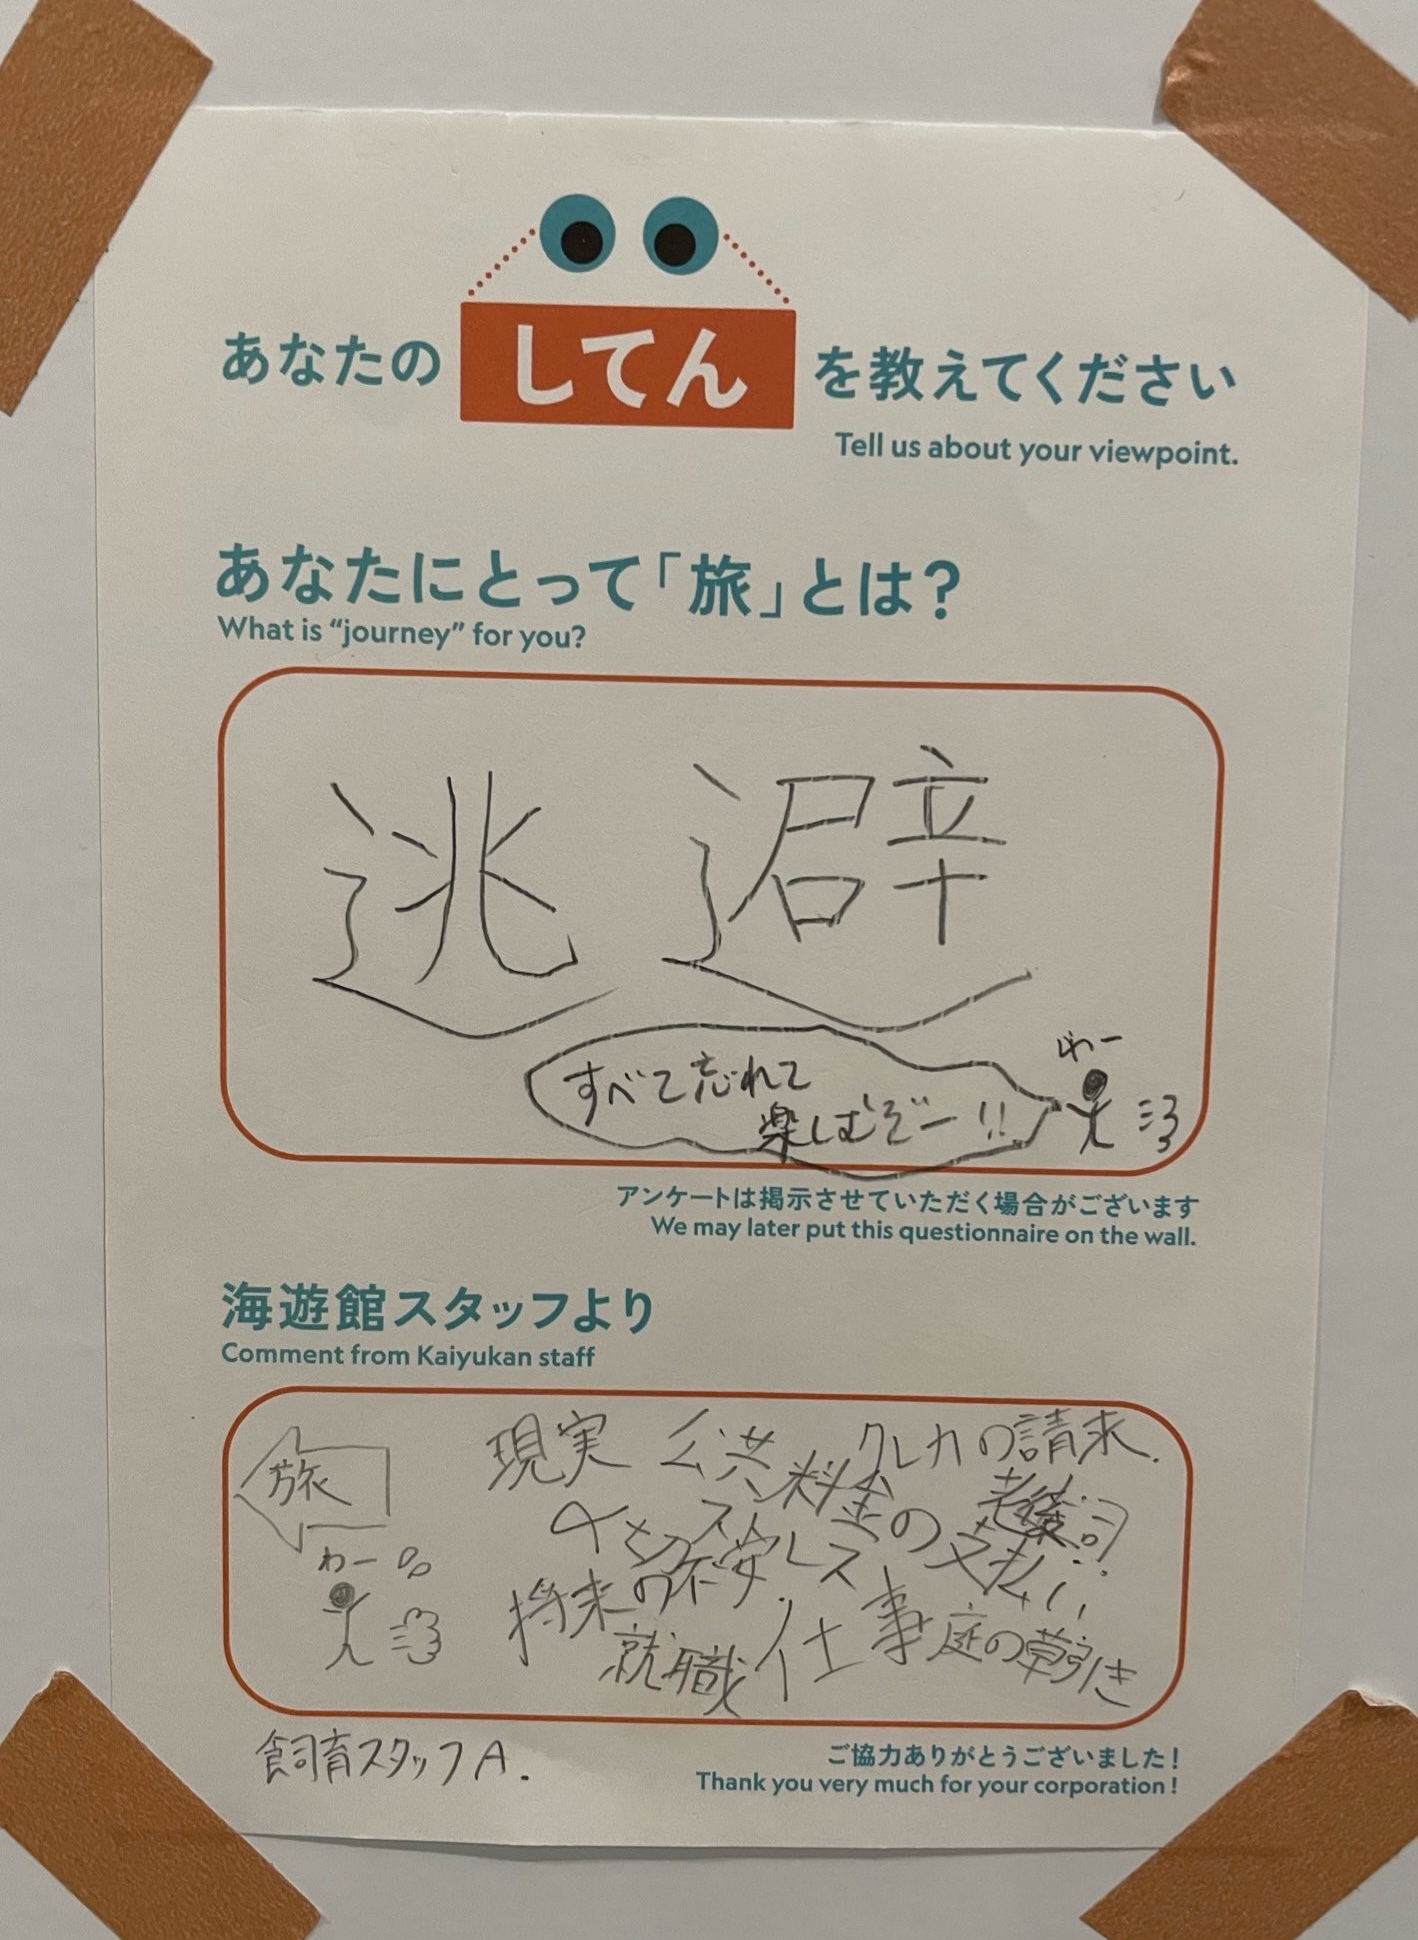 あなたの してん を教えてください
Tell us about your viewpoint.
あなたにとって「旅」とは？
What is “journey” for you?
逃避
わー
すべて忘れて
楽しむぞー!!
アンケートは掲示させていただく場合がございます
We may later put this questionnaire on the wall.
海遊館スタッフより
Comment from Kaiyukan staff
旅
わー
現実
公共料金の支払い
クレカの請求.
老後
〆切
ストレス
将来の不安.
就職
仕事
庭の草引き
飼育スタッフA.
ご協力ありがとうございました！
Thank you very much for your corporation !